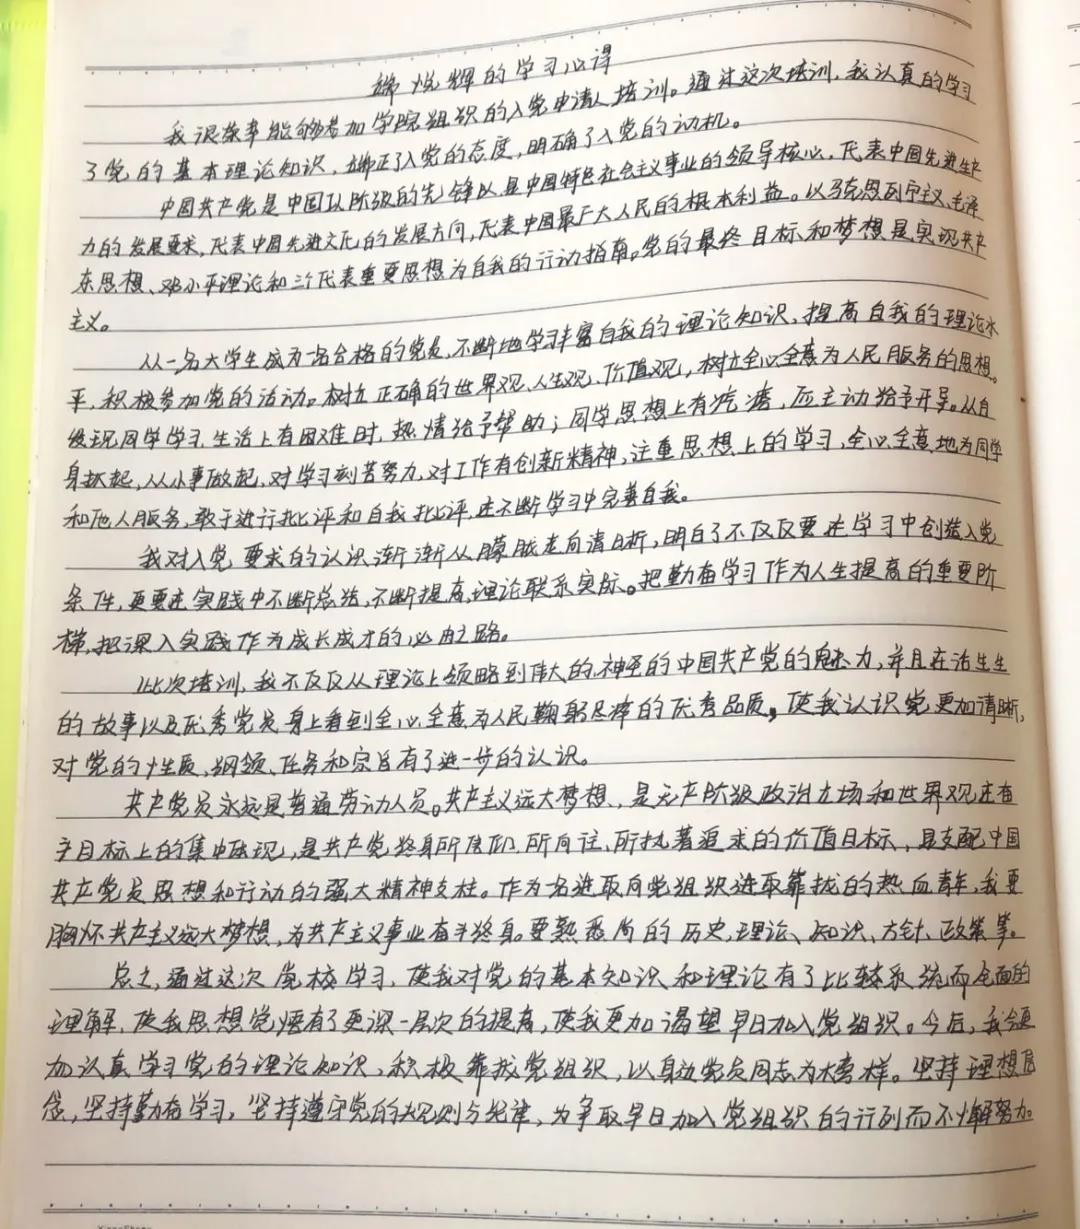 悦辉的学习心得
我很荣幸能够参加学院组织的入党申请人培训。通过这次培训,我认真的学习
了党的基本理论知识,端正了入党的态度,明确了入党的动机。
中国共产党是中国工人阶级的先锋队,是中国特色社会主义事业的领导核心,代表中国先进生产
力的发展要求,代表中国先进文化的发展方向,代表中国最广大人民的根本利益。以马克思列宁主义、毛泽
东思想、邓小平理论和三个代表重要思想为自我的行动指南。党的最终目标和梦想是实现共产
主义。
从一名大学生成为一名合格的党员,不断地学习丰富自我的理论知识,提高自我的理论水
平,积极参加党的活动。树立正确的世界观、人生观、价值观,树立全心全意为人民服务的思想。
级玩同学学习、生活上有困难时,热情给予帮助;同学思想上有疙瘩,应主动给予开导。从自
身抓起,从小事做起,对学习刻苦努力,对工作有创新精神,注重思想上的学习,全心全意地为同学
和他人服务,敢于进行批评和自我批评,在不断学习中完善自我。
我对入党要求的认识渐渐从朦胧走向清晰,明白了不仅仅要在学习中创造入党
条件,更要在实践中不断总结,不断提高,理论联系实际。把勤奋学习作为人生提高的重要阶
梯,把深入实践作为成长成才的必由之路。
此次培训,我不仅仅从理论上领略到伟大的、神圣的中国共产党的魅力,并且在活生生
的故事以及优秀党员身上看到全心全意为人民鞠躬尽瘁的优秀品质,使我认识党更加清晰,
对党的性质、纲领、任务和宗旨有了进一步的认识。
共产党员永远是普通劳动人员。共产主义远大梦想,是无产阶级政治立场和世界观在奋
斗目标上的集中体现,是共产党终身所信仰、所向往、所执著追求的价值目标,是支配中国
共产党员思想和行动的强大精神支柱。作为一名进取向党组织进取靠拢的热血青年,我要
胸怀共产主义远大梦想,为共产主义事业奋斗终身。要熟悉党的历史、理论、知识、方针、政策等。
总之,通过这次党校学习,使我对党的基本知识和理论有了比较系统而全面的
理解,使我思想觉悟有了更深一层次的提高,使我更加渴望早日加入党组织。今后,我会更
加认真学习党的理论知识,积极靠拢党组织,以身边党员同志为榜样。坚持理想信
念,坚持勤奋学习,坚持遵守党的规则与纪律,为争取早日加入党组织的行列而不懈努力。